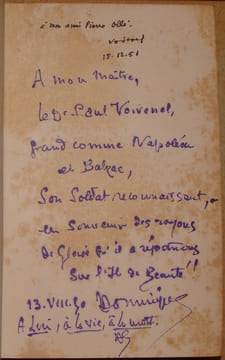 à mon ami Pierre
Voivenel
15.12.51
A mon Maître,
le Dr Paul Voivenel,
grand comme Napoléon
et Balzac,
Son Soldat reconnaissant,
en Souvenir des rayons
de Gloire qu'il a
Sur l'Ile de Beauté!!
13.VIII.50 Dominique
A Lui, à la vie, à la mort.